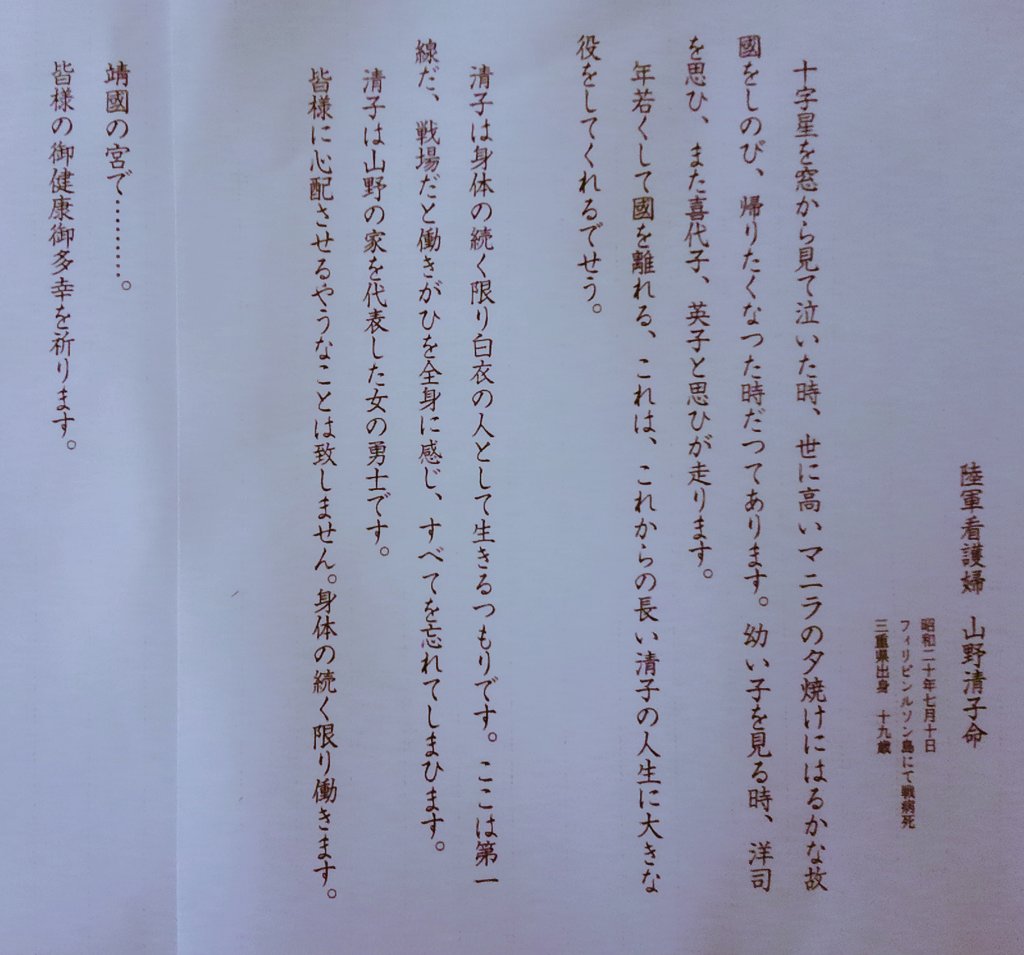 陸軍看護婦　山野清子命
昭和二十年七月十日
フィリピンルソン島にて戦病死
三重県出身　十九歳
十字星を窓から見て泣いた時、世に高いマニラの夕焼けにはるかな故
國をしのび、帰りたくなつた時だつてあります。幼い子を見る時、洋司
を思ひ、また喜代子、英子と思ひが走ります。
年若くして國を離れる、これは、これからの長い清子の人生に大きな
役をしてくれるでせう。
清子は身体の続く限り白衣の人として生きるつもりです。ここは第一
線だ、戦場だと働きがひを全身に感じ、すべてを忘れてしまひます。
清子は山野の家を代表した女の勇士です。
皆様に心配させるやうなことは致しません。身体の続く限り働きます。
靖國の宮で………。
皆様の御健康御多幸を祈ります。